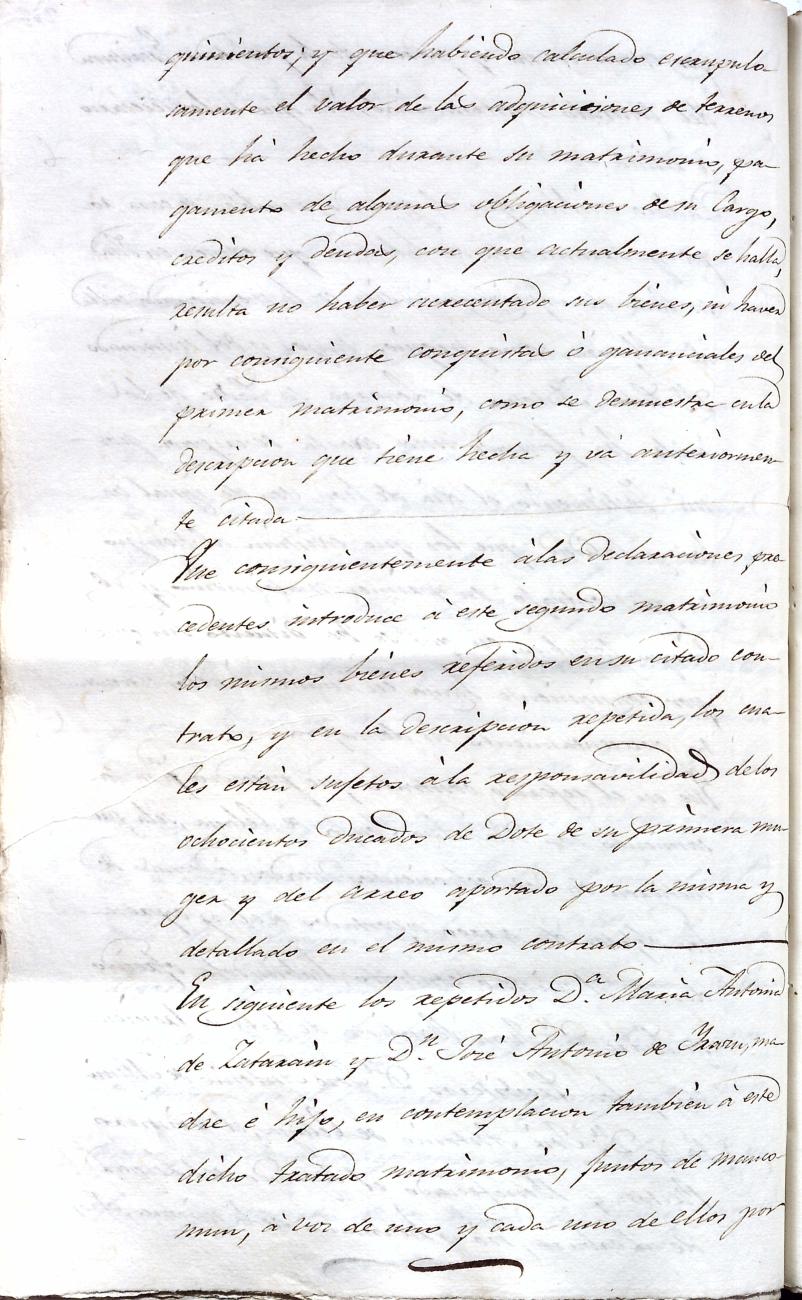 quinientos; y que habiendo calculado escrupulo-
samente el valor de las adquiciciones de terrenos
que há hecho durante su matrimonio, pa-
gamento de algunas obligaciones de su Cargo,
creditos y deudas, con que actualmente se halla,
resulta no haber acrecentado sus bienes, ni haver
por consiguiente conquistas ó gananciales del
primer matrimonio, como se demuestra en la
descripcion que tiene hecha y vá anteriormen-
te citada
Que consiguientemente á las declaraciones pre-
cedentes introduce á este segundo matrimonio
los mismos bienes referidos en su citado con-
trato, y en la descripcion repetida, los cua-
les están sujetos á la responsavilidad de los
ochocientos Ducados de Dote de su primera mu-
ger y del arreo aportado por la misma y
detallado en el mismo contrato
En siguiente los repetidos D.ª Maria Antonia
de Zatarain y D.n José Antonio de Yraru, ma-
dre é hijo, en contemplacion tambien á este
dicho tratado matrimonio, juntos de manco-
mun, á voz de uno y cada uno de ellos por